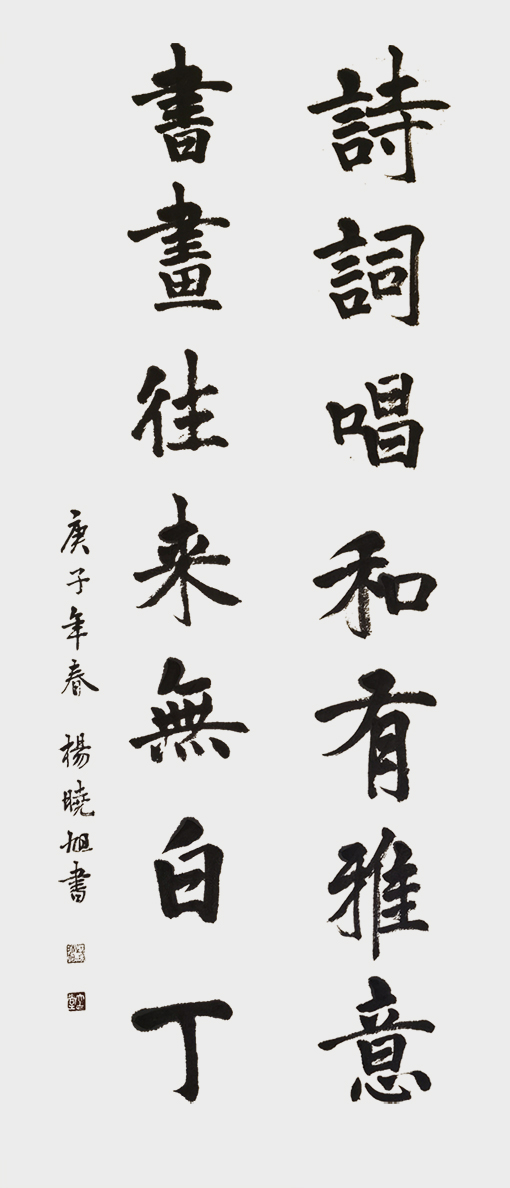 詩詞唱和有雅意
書畫往来無白丁
庚子年春 楊曉旭書